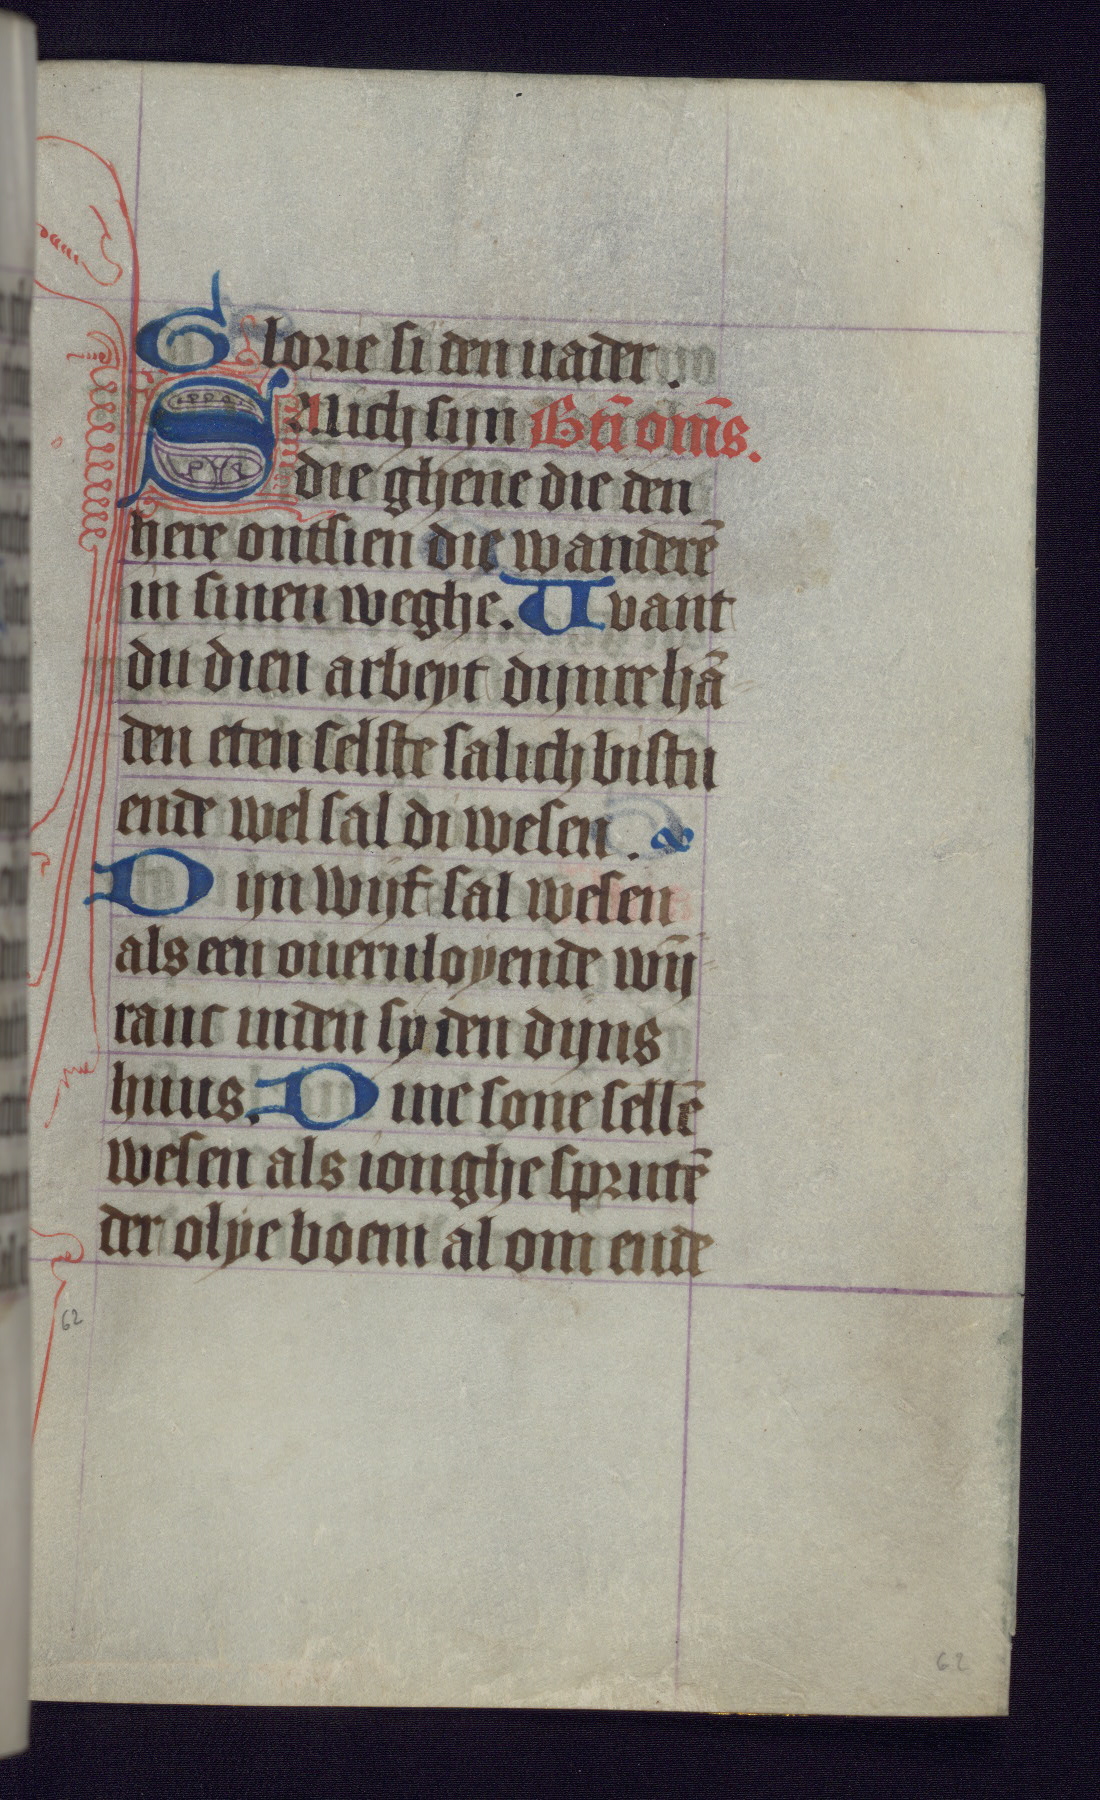 Glorie si den uader.
Salich sijn Bti̅ om̅s.
die ghene die den
here ontsien die wanderē
in sinen weghe. Want
du dien arbeyt dijnre hā
den eten selste salich bistu
ende wel sal di wesen.
Dijn wijf sal wesen
als een oueruloyende wij
ranc inden syden dijns
huus. Dine sone sellē
wesen als ionghe sprutē
der olye boem al om ende
62
62